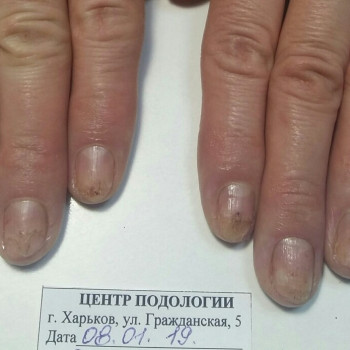 ЦЕНТР ПОДОЛОГИИ
г. Харьков, ул. Гражданская, 5
Дата 08. 01. 19.